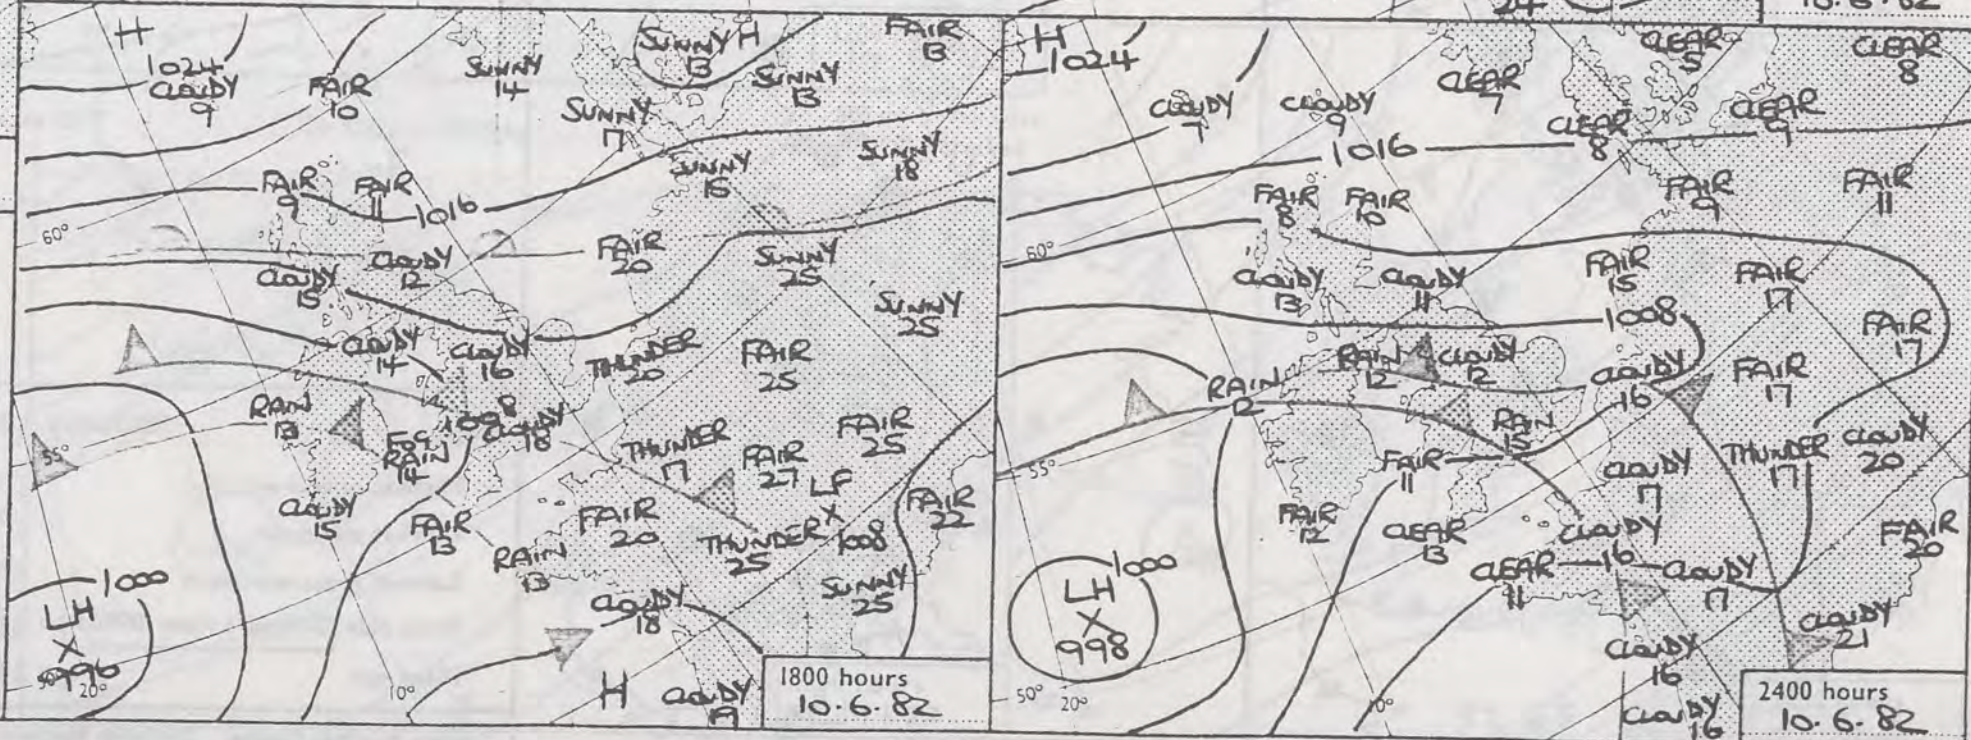 24
10.6.82
H
1024
CLOUDY
9
FAIR
10
SUNNY
14
SUNNY H
13
FAIR
13
SUNNY
13
SUNNY
17
SUNNY
15
SUNNY
18
FAIR
9
FAIR
11
1016
60°
CLOUDY
15
CLOUDY
12
FAIR
20
SUNNY
25
SUNNY
25
CLOUDY
14
CLOUDY
16
THUNDER
20
FAIR
25
RAIN
13
1008
CLOUDY
18
FOG
RAIN
14
55°
THUNDER
17
FAIR
27
FAIR
25
LF
X
1008
CLOUDY
15
FAIR
13
RAIN
13
FAIR
20
THUNDER
25
FAIR
22
SUNNY
25
1000
LH
X
996
50°
20°
10°
CLOUDY
18
H
CLOUDY
1800 hours
10.6.82
H
1024
CLOUDY
7
CLOUDY
9
CLEAR
7
CLEAR
5
CLEAR
8
CLEAR
8
CLEAR
9
1016
FAIR
8
FAIR
10
FAIR
9
FAIR
11
60°
CLOUDY
13
CLOUDY
11
FAIR
15
FAIR
17
1008
FAIR
17
RAIN
12
RAIN
12
CLOUDY
12
CLOUDY
16
FAIR
17
RAIN
15
55°
FAIR
11
CLOUDY
17
THUNDER
17
CLOUDY
20
FAIR
12
CLEAR
13
CLOUDY
16
FAIR
20
1000
LH
X
998
CLEAR
11
CLOUDY
17
CLOUDY
21
CLOUDY
16
50°
20°
10°
CLOUDY
16
2400 hours
10.6.82